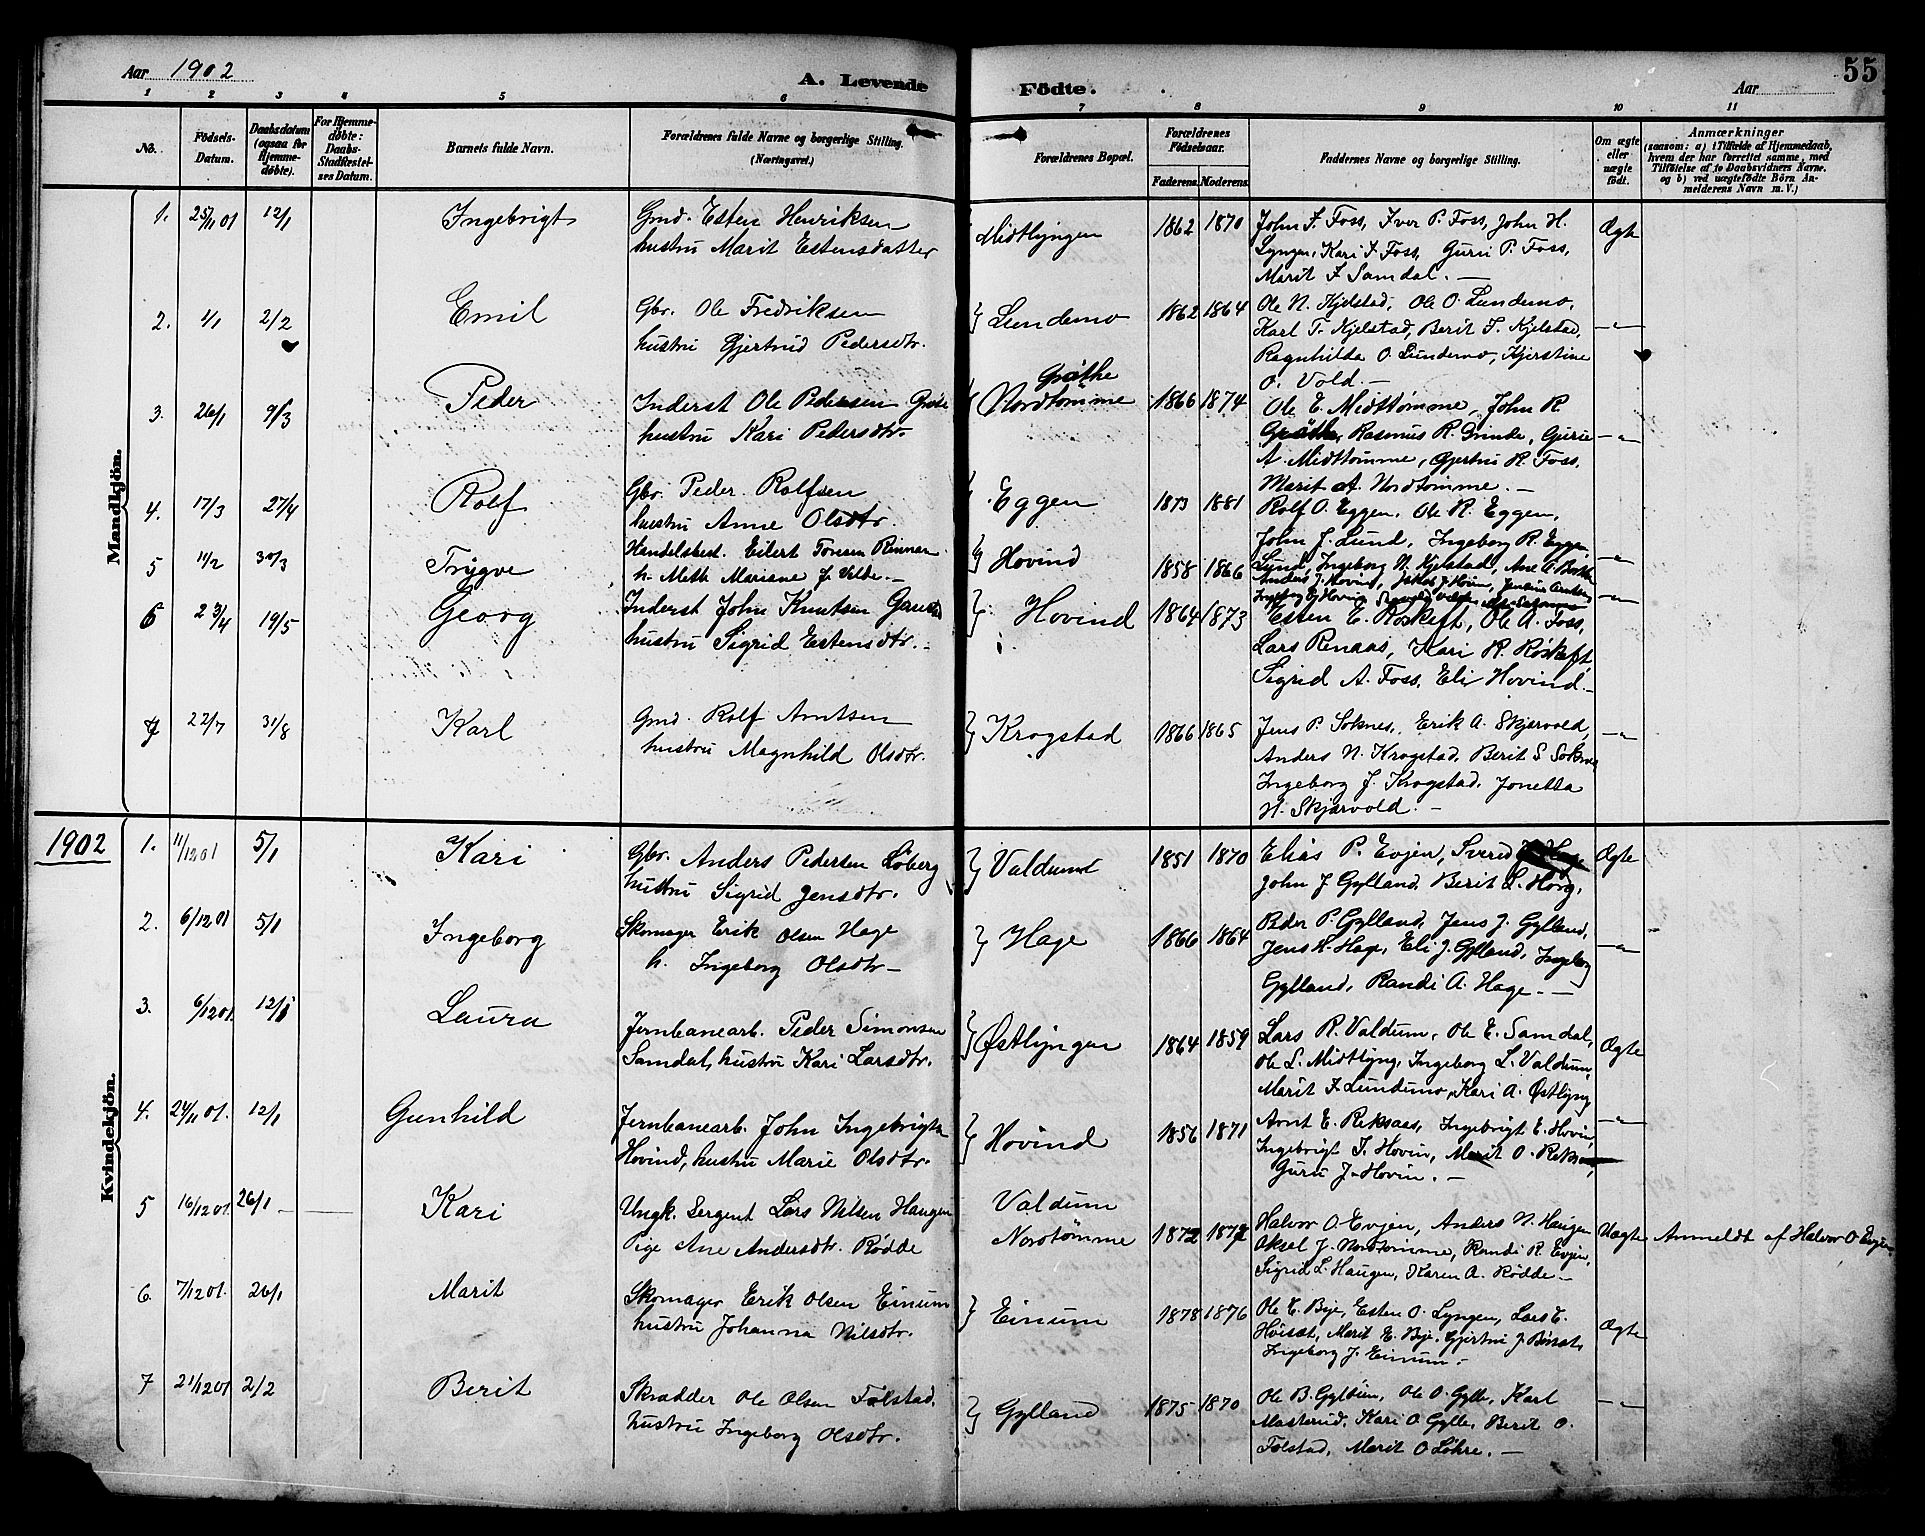 Aar 1902
A. Levende Födte.
Aar
55
1 2 3 4 5 6 7 8 9 10 11
No.
Födsels-Datum.
Daabsdatum (ogsaa for Hjemme-döbte).
For Hjemme-döbte: Daabs-Stadfæstelses Datum.
Barnets fulde Navn.
Forældrenes fulde Navne og borgerlige Stilling. (Næringsvei.)
Forældrenes Bopæl.
Forældrenes Födselsaar.
Faderens. Moderens.
Faddernes Navne og borgerlige Stilling.
Om ægte eller uægte födt.
Anmærkninger (saasom: a) i Tilfælde af Hjemmedaab, hvem der har forrettet samme, med Tilföielse af to Daabsvidners Navne, og b) ved uægtefödte Börn Anmelderens Navn m. V.)
Mandkjön.
1. 25/11 01 12/1 Ingebrigt
Gmd. Esten Henriksen
hustru Marit Estensdatter
Midtlyngen 1862 1870
John F. Foss, Iver P. Foss, John H.
Lyngen, Kari F. Foss, Guru P. Foss,
Marit F Samdal. —
Ægte
2. 1/1 2/2 Emil
Gbr. Ole Fredriksen
hustru Gjertrud Pedersdtr.
Lundemo 1862 1864
Ole N. Kjelstad, Ole O. Lundemo,
Karl T. Kjelstad, Berit T. Kjelstad,
Ragnhilda O. Lundemo, Kjerstine
O. Vold. —
—"—
3. 26/1 9/3 Peder
Inderst Ole Pedersen Gräthe
hustru Kari Pedersdtr.
Gräthe
Nordtømme 1866 1874
Ole E. Midttømme, John R
Gräthe, Rasmus R. Grinde, Gurie
A. Midttømme, Gjertru R. Foss,
Marit A. Nordtømme. —
—"—
4. 17/3 27/4 Rolf
Gbr. Peder Rolfsen
hustru Anne Olsdtr
Eggen 1873 1881
Rolf O. Eggen, Ole R. Eggen,
John J. Lund, Ingeborg R. Eggen
Lund, Ingeborg N. Kjelstad,
—"—
5 11/2 30/3 Trygve
Handelsbest. Eilert Tonsen Rinnan
h. Meth Mariane J. Velde. —
Hovind 1858 1866
Anders J. Hovind, Jakob J. Hovin,
—"—
6 23/4 19/5 Georg
Inderst John Knutsen Gaustad
hustru Sigrid Estensdtr. —
Hovind 1864 1873
Esten E. Røskeft, Ole A. Foss,
Lars Renaas, Kari R. Røskeft,
Sigrid A. Foss, Eli Hovind. —
7 22/7 31/8 Karl
Gmd. Rolf Arntsen
hustru Magnhild Olsdtr.
Krogstad 1866 1865
Jens P. Soknes, Erik A. Skjervold,
Anders N. Krogstad, Berit S Soknes
Ingeborg J. Krogstad, Jonetta
N. Skjærvold. —
—"—
1902
Kvindekjön.
1. 11/12 01 5/1 Kari
Gbr. Anders Pedersen Løberg
hustru Sigrid Jensdtr.
Valdum 1851 1870
Elias P. Evjen, Sivert Hage
John J Gylland, Berit L. Horg,
Ægte
2. 6/12 01 5/1 Ingeborg
Skomager Erik Olsen Hage
h. Ingeborg Olsdtr —
Hage 1866 1864
Peder P. Gylland, Jens J. Gylland,
Jens H. Hage, Eli J. Gylland, Ingeborg
Gylland, Randi A. Hage. —
—"—
3. 6/12 01. 12/1 Laura
Jernbanearb. Peder Simonsen
Samdal, hustru Kari Larsdtr.
Østlyngen 1864 1859
Lars R. Valdum, Ole E. Samdal,
Ole L. Midtlyng, Ingeborg L. Valdum,
Marit F. Lundemo, Kari A. Østlyng
Ægte
4. 24/11 01. 12/1 Gunhild
Jernbanearb. John Ingebrigtsn
Hovind, hustru Marie Olsdtr.
Hovind 1856 1871
Arnt E. Reksaas, Ingebrigt E. Hovin,
Ingebrigt I. Hovin, Marit O. Reksaas,
Guru J. Hovin. —
—"—
5 16/12 01. 26/1 Kari
Ungk. Sergent Lars Nilsen Haugen
Pige Ane Andersdtr. Rødde
Valdum
Nordtømme 1872 1872
Halvor O. Evjen, Anders N. Haugen
Aksel J. Nordtømme, Randi R. Evjen,
Sigrid L. Haugen, Karen A. Rødde —
Uægte
Anmeldt af Halvor O Evjen
6. 7/12 01. 26/1 Marit
Skomager Erik Olsen Einum
hustru Johanna Nilsdtr.
Einum 1878 1876
Ole E. Bye, Esten O. Lyngen, Lars E.
Høisæt, Marit E. Bye, Gjertru J. Børset,
Ingeborg J. Einum. —
Ægte
7 21/12 01 2/2 Berit
Skrædder Ole Olsen Tølstad,
hustru Ingeborg Olsdtr.
Gylland 1875 1870
Ole B. Gylbun, Ole O. Gylle, Karl
Masterud, Kari O Gylle, Berit O.
Tølstad, Marit O Løhre. —
—"—